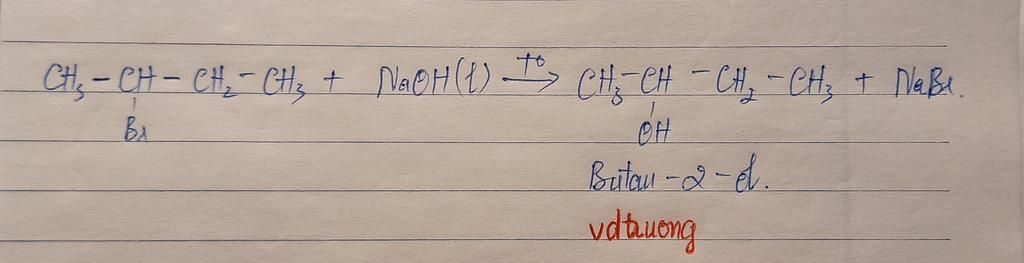 CH₃ – CH – CH₂ – CH₃ + NaOH(l) →(t°) CH₃ – CH – CH₂ – CH₃ + NaBr.
Br OH
Butan – 2 – ol.
vdtruong